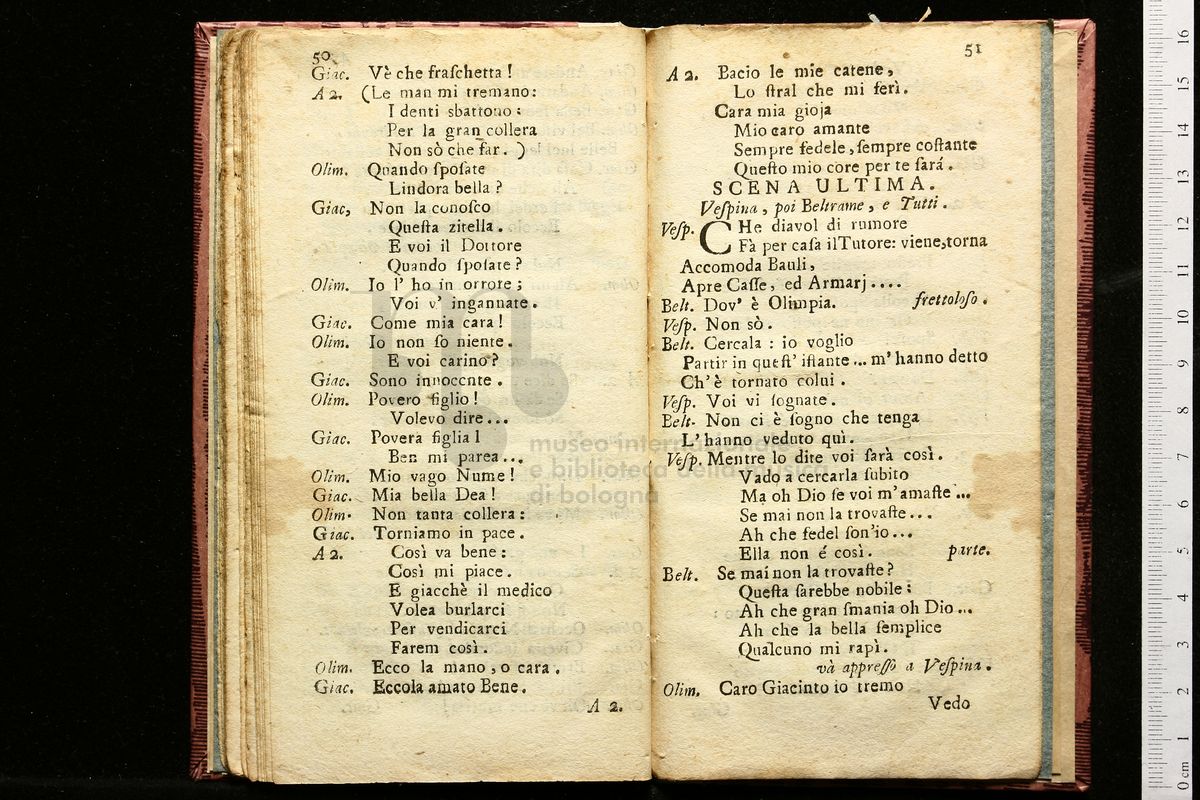 50
Giac. Vè che fraſchetta !
A 2. (Le man mi tremano:
I denti sbattono :
Per la gran collera
Non sò che far. )
Olim. Quando ſpoſate
Lindora bella ?
Giac, Non la conoſco
Queſta zitella .
E voi il Dottore
Quando ſpoſate ?
Olim. Io l' ho in orrore ;
Voi v' ingannate .
Giac. Come mia cara !
Olim. Io non ſo niente .
E voi carino ?
Giac. Sono innocente .
Olim. Povero figlio !
Volevo dire...
Giac. Povera figlia !
Ben mi parea...
Olim. Mio vago Nume !
Giac. Mia bella Dea !
Olim. Non tanta collera :
Giac. Torniamo in pace .
A 2. Così va bene :
Così mi piace .
E giacchè il medico
Volea burlarci
Per vendicarci
Farem così .
Olim. Ecco la mano , o cara .
Giac. Eccola amato Bene .
A 2.
51
A 2. Bacio le mie catene ,
Lo ſtral che mi ferì .
Cara mia gioja
Mio caro amante
Sempre fedele , ſempre coſtante
Queſto mio core per te ſará .
SCENA ULTIMA.
Veſpina , poi Beltrame , e Tutti .
Veſp. CHe diavol di rumore
Fà per caſa il Tutore: viene, torna
Accomoda Bauli ,
Apre Caſſe , ed Armarj ....
Belt. Dov' è Olimpia. frettoloſo .
Veſp. Non sò .
Belt. Cercala : io voglio
Partir in queſt' iſtante ... m' hanno detto
Ch' è tornato colui .
Veſp. Voi vi ſognate .
Belt. Non ci è ſogno che tenga
L' hanno veduto quì .
Veſp. Mentre lo dite voi ſarà così .
Vado a cercarla ſubito
Ma oh Dio ſe voi m' amaſte ...
Se mai non la trovaſte ...
Ah che fedel ſon' io ...
Ella non é così . parte.
Belt. Se mai non la trovaſte ?
Queſta ſarebbe nobile :
Ah che gran ſmania oh Dio ...
Ah che la bella ſemplice
Qualcuno mi rapì .
và appreſſo a Veſpina .
Olim. Caro Giacinto io tremo
Vedo
museo internazionale
e biblioteca della musica
di bologna
0 cm 1 2 3 4 5 6 7 8 9 10 11 12 13 14 15 16